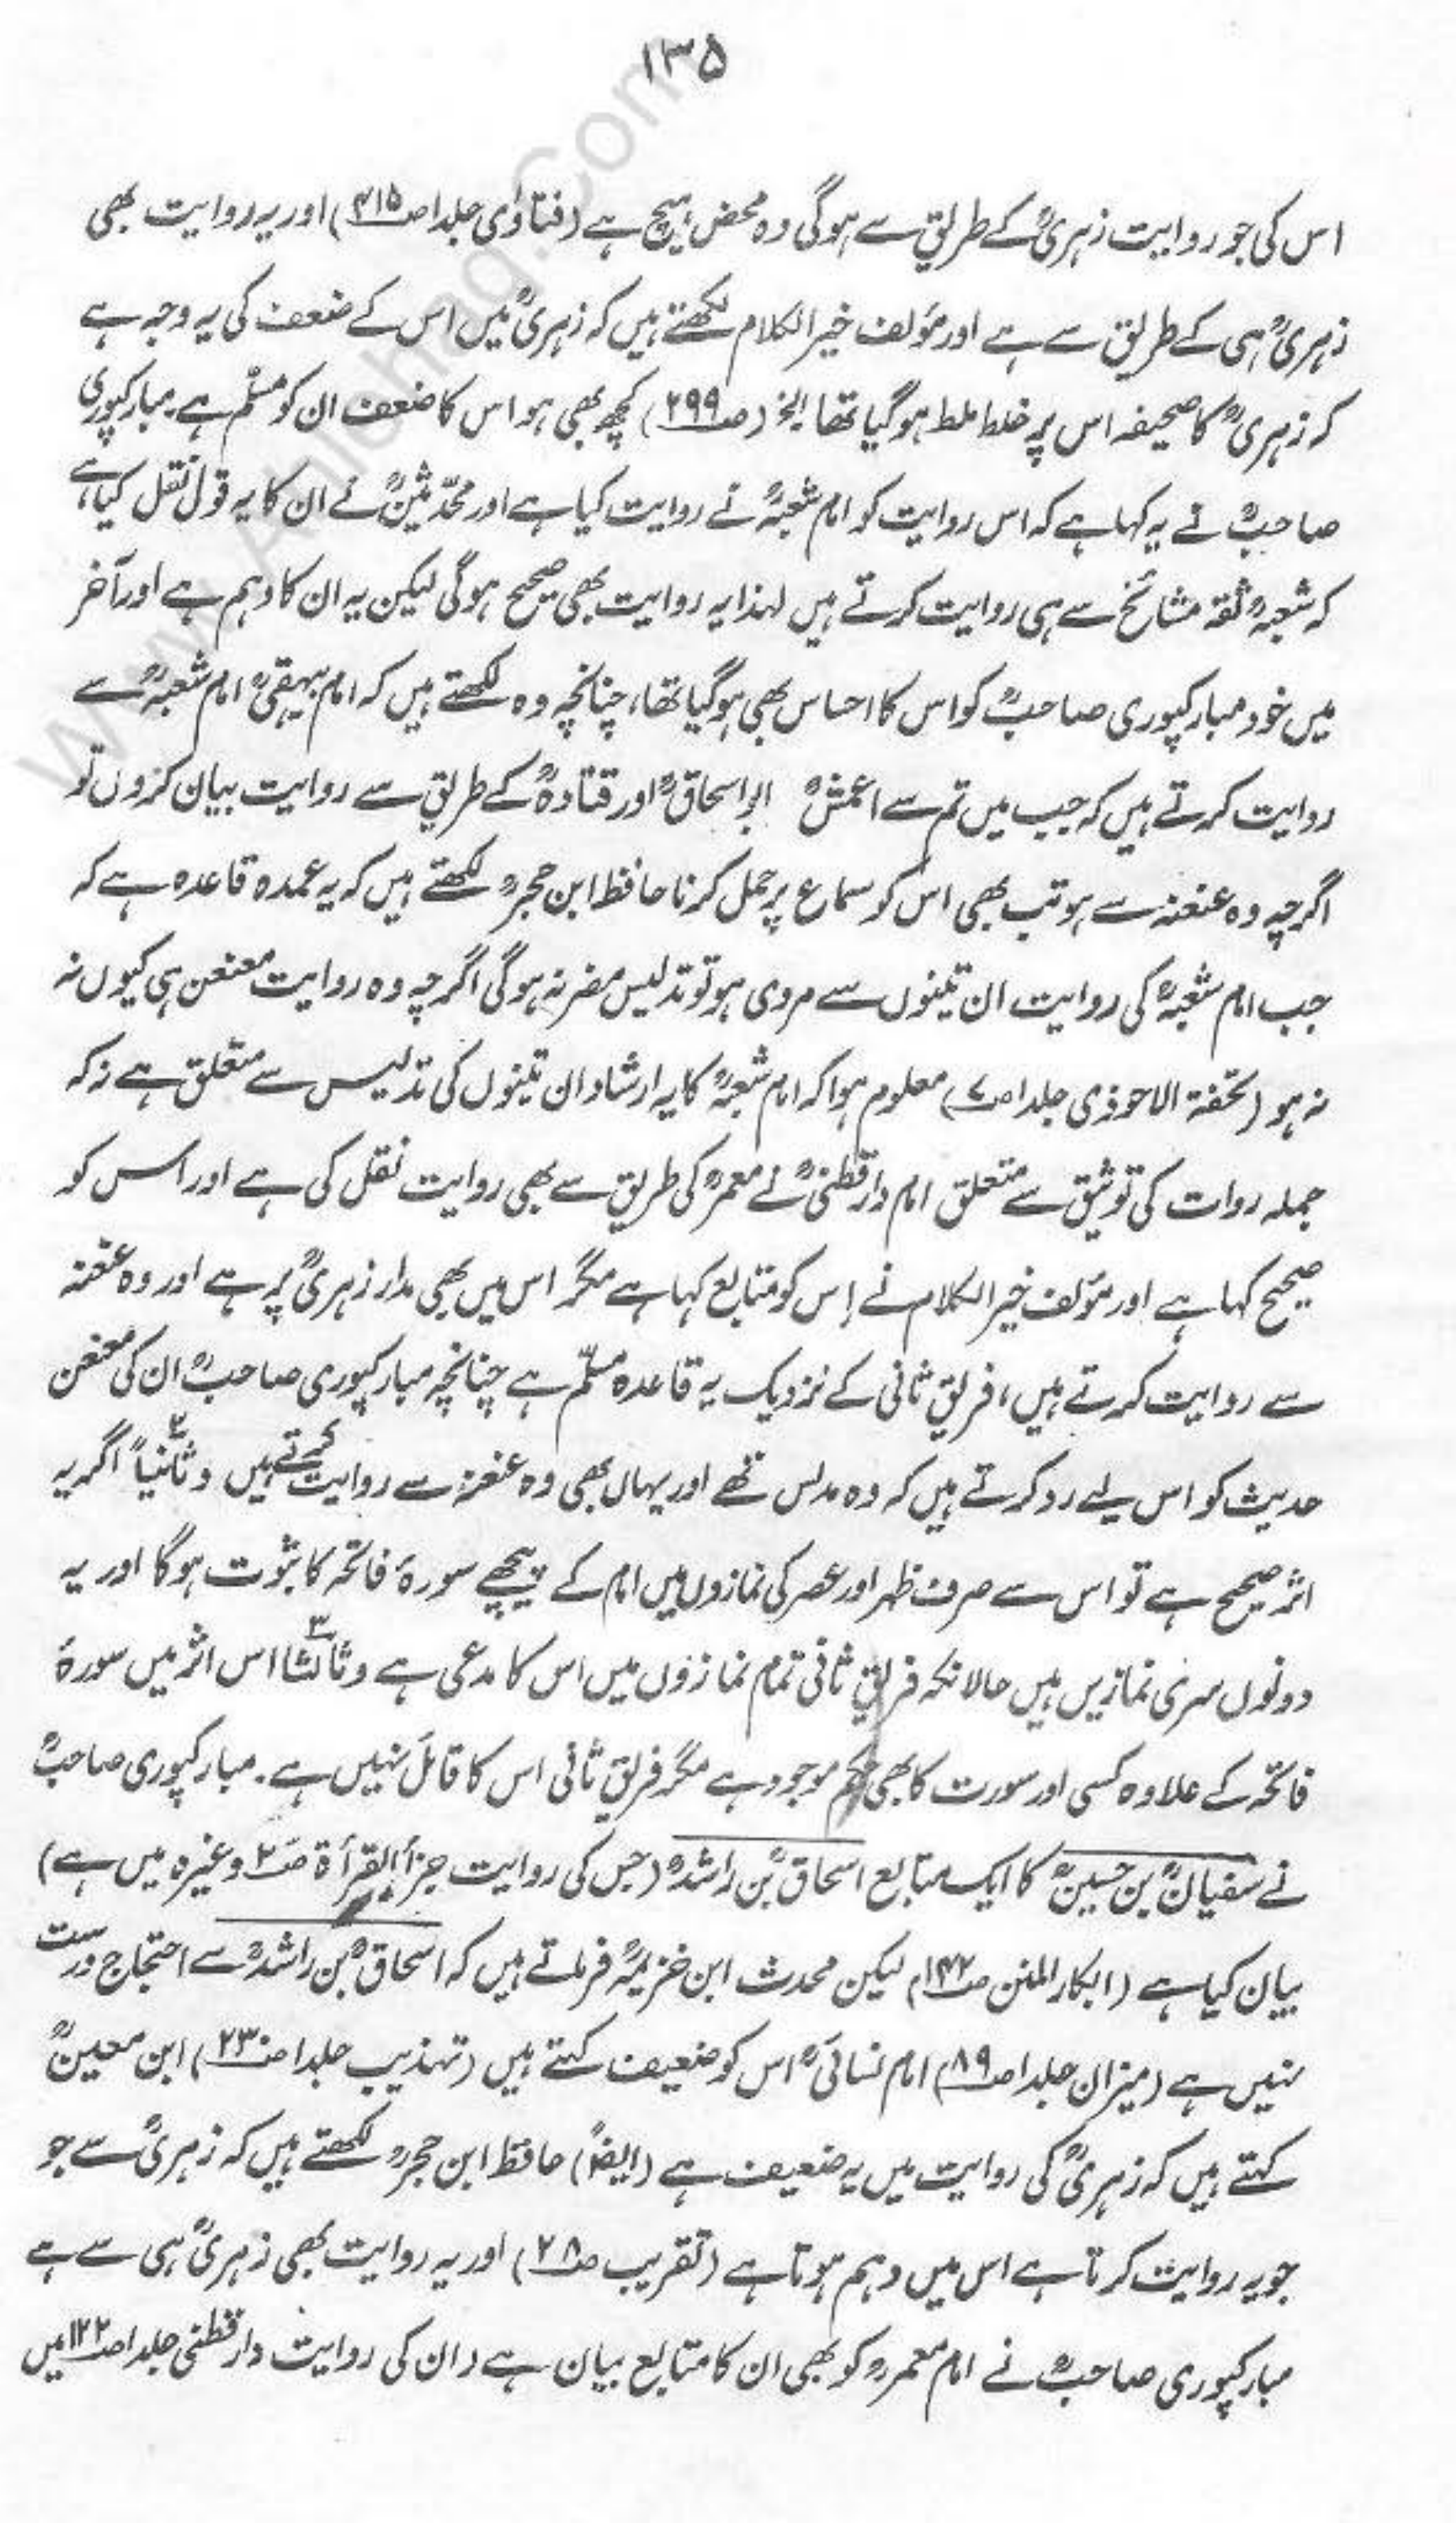 ۱۳۵
اس کی جو روایت زہریؒ کے طریق سے ہوگی وہ محض ہیچ ہے (فتاوٰی جلد۱ ص۳۱۵) اور یہ روایت بھی
زہریؒ ہی کے طریق سے ہے اور مؤلف خیر الکلام لکھتے ہیں کہ زہریؒ میں اس کے ضعف کی یہ وجہ ہے
کہ زہریؒ کا صحیفہ اس پر خلط ملط ہوگیا تھا الخ (ص۲۹۹) کچھ بھی ہو اس کا ضعف ان کو مسلّم ہے مبارکپوری
صاحبؒ نے یہ کہا ہے کہ اس روایت کو امام شعبہؒ نے روایت کیا ہے اور محدّثینؒ نے ان کا یہ قول نقل کیا ہے
کہ شعبہؒ ثقہ مشائخ سے ہی روایت کرتے ہیں لہذا یہ روایت بھی صحیح ہوگی لیکن یہ ان کا وہم ہے اور آخر
میں خود مبارکپوری صاحبؒ کو اس کا احساس بھی ہوگیا تھا، چنانچہ وہ لکھتے ہیں کہ امام بیہقیؒ امام شعبہؒ سے
روایت کرتے ہیں کہ جب میں تم سے اعمشؒ ابو اسحاقؒ اور قتادہؒ کے طریق سے روایت بیان کروں تو
اگرچہ وہ عنعنہ سے ہو تب بھی اس کو سماع پر حمل کرنا حافظ ابن حجرؒ لکھتے ہیں کہ یہ عمدہ قاعدہ ہے کہ
جب امام شعبہؒ کی روایت ان تینوں سے مروی ہو تو تدلیس مضر نہ ہوگی اگرچہ وہ روایت معنعن ہی کیوں نہ
نہ ہو (تحفۃ الاحوذی جلد۱ ص۷) معلوم ہوا کہ امام شعبہؒ کا یہ ارشاد ان تینوں کی تدلیس سے متعلق ہے نہ کہ
جملہ روات کی توثیق سے متعلق امام دارقطنیؒ نے معمرؒ کی طریق سے بھی روایت نقل کی ہے اور اس کو
صحیح کہا ہے اور مؤلف خیر الکلام نے اِس کو متابع کہا ہے مگر اس میں بھی مدار زہریؒ پر ہے اور وہ عنعنہ
سے روایت کرتے ہیں، فریق ثانی کے نزدیک یہ قاعدہ مسلّم ہے چنانچہ مبارکپوری صاحبؒ ان کی معنعن
حدیث کو اس لیے رد کرتے ہیں کہ وہ مدلس تھے اور یہاں بھی وہ عنعنہ سے روایت کرتے ہیں وثانیاً ۲ اگر یہ
اثر صحیح ہے تو اس سے صرف ظہر اور عصر کی نمازوں میں امام کے پیچھے سورۂ فاتحہ کا ثبوت ہوگا اور یہ
دونوں سری نمازیں ہیں حالانکہ فریق ثانی تمام نمازوں میں اس کا مدعی ہے وثالثا ۳ اس اثر میں سورۂ
فاتحہ کے علاوہ کسی اور سورت کا بھی حکم موجود ہے مگر فریق ثانی اس کا قائل نہیں ہے. مبارکپوری صاحبؒ
نے سفیانؒ بن حسینؒ کا ایک متابع اسحاقؒ بن راشدؒ (جس کی روایت جزأ القرأۃ ص۲ وغیرہ میں ہے)
بیان کیا ہے (ابکار المنن ص۱۴۲) لیکن محدث ابن خزیمہؒ فرماتے ہیں کہ اسحاقؒ بن راشدؒ سے احتجاج درست
نہیں ہے (میزان جلد۱ ص۸۹) امام نسائیؒ اس کو ضعیف کہتے ہیں (تہذیب جلد۱ ص۲۳۰) ابن معینؒ
کہتے ہیں کہ زہریؒ کی روایت میں یہ ضعیف ہے (ایضًا) حافظ ابن حجرؒ لکھتے ہیں کہ زہریؒ سے جو
جو یہ روایت کرتا ہے اس میں وہم ہوتا ہے (تقریب ص۲۸) اور یہ روایت بھی زہریؒ ہی سے ہے
مبارکپوری صاحبؒ نے امام معمرؒ کو بھی ان کا متابع بیان ہے (ان کی روایت دارقطنی جلد۱ ص۱۲۲ میں
www.Ahlehaq.Com